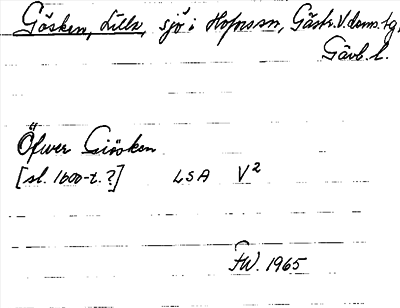 Gösken, Lilla, sjö i Hofors sn, Gästr. V. doms. tg,
Gävl. l.
Öfwer Giösken
[sl. 1600-t. ?] LSA V²
FW. 1965